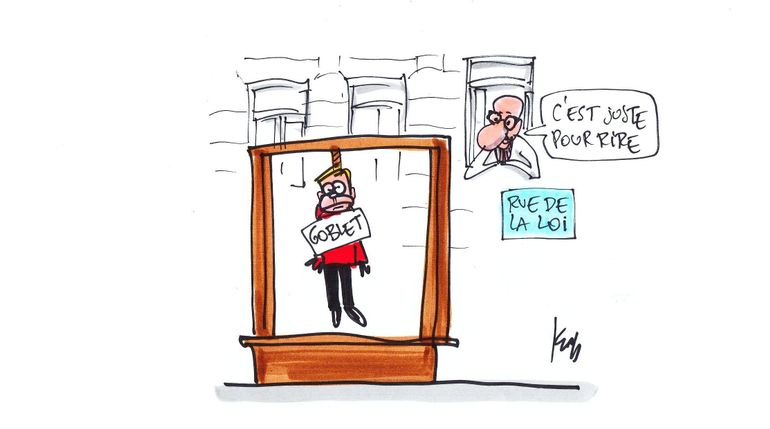 C'EST JUSTE
POUR RIRE
GOBLET
RUE DE
LA LOI